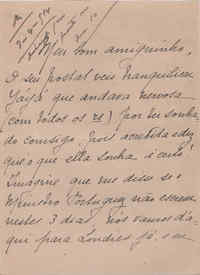 Meu bom amiguinho,
O seu postal veio tranquilisar
que andava nervosa
(com todos os rr) por ter sonhado
comsigo, pois acredita
que o que ella sonha é certo!
Imagine que me disse o
Ministro Portuguez não
nestes 3 dias nós vamos da-
qui para Londres já, e